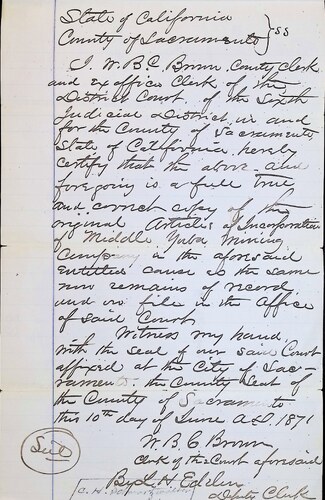 State of California
County of Sacramento } SS
I. W. B. C. Brown. County Clerk
and ex officio Clerk of the
District Court. of the Sixth
Judicial District. in and
for the County of Sacramento
State of California. hereby
certify that the above and
foregoing is a full true
and correct copy of the
original Articles of Incorporation
of Middle Yuba Mining
Company in the aforesaid
entitled cause as the same
now remains of record
and on file in the Office
of said Court
Witness my hand
with the Seal of our said Court
affixed at the City of Sac-
ramento the County Seat of
the County of Sacramento
this 10th day of June A.D. 1871
W. B. C. Brown
Clerk of the Court aforesaid
Seal
By
Deputy Clerk